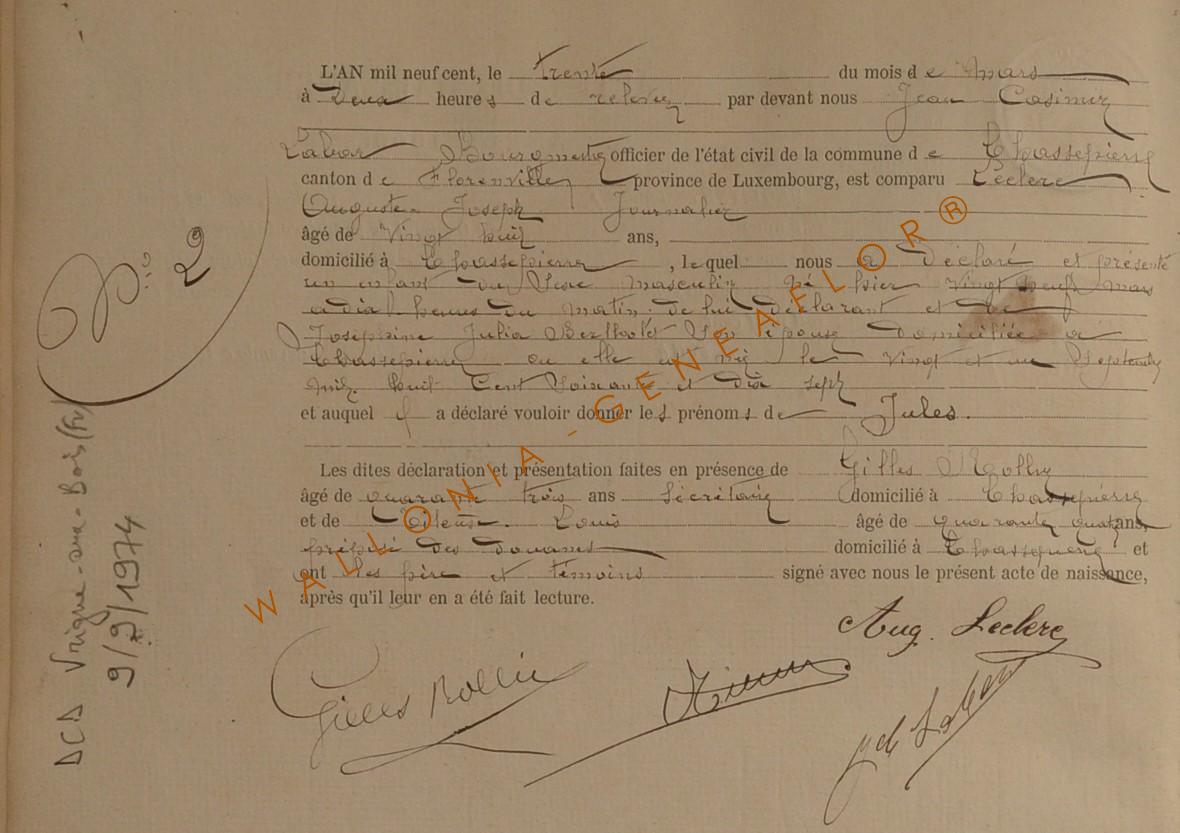 L'AN mil neuf cent, le trente du mois de Mars
à Deux heures de relevée par devant nous Jean Casimir
Labor Bourgmestre officier de l'état civil de la commune de Chassepierre
canton de Florenville province de Luxembourg, est comparu Leclerc
Auguste Joseph Journalier
âgé de Vingt huit ans,
domicilié à Chassepierre, lequel nous a déclaré et présenté
un enfant du Sexe masculin né hier Vingt neuf Mars
a dix heures du matin de lui déclarant et de
Joséphine Julia Son épouse domiciliée a
Chassepierre ou elle est née le Vingt et un Septembre
mil huit Cent Soixante et dix sept
et auquel il a déclaré vouloir donner les prénoms de Jules.
Les dites déclaration et présentation faites en présence de Gilles
âgé de quarante trois ans Sécrétaire domicilié à Chassepierre
et de Louis âgé de quarante quatre ans,
préposé des douanes domicilié à Chassepierre et
ont les père et témoins signé avec nous le présent acte de naissance,
après qu'il leur en a été fait lecture.
Aug. Leclerc
Gilles
N° 2
DCD Vrigne-aux-Bois (Fr)
9/2/1974
WALLONIA - GENEAFLOR ®